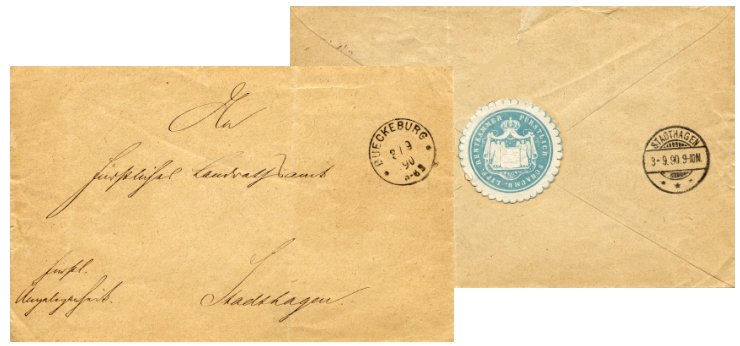 An
Fürstliches Landrathsamt
Fürstl.
Angelegenheit.
Stadthagen.
BUECKEBURG
2 9
90
FÜRSTLICH SCHAUMB. LIPP. RENTKAMMER
STADTHAGEN
3-9.90.9-10N.